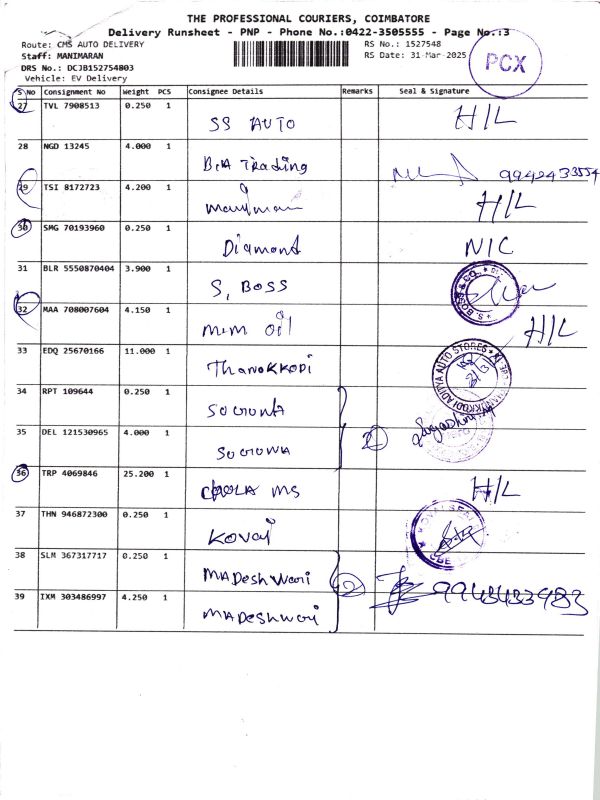 THE PROFESSIONAL COURIERS, COIMBATORE
Delivery Runsheet - PNP - Phone No.:0422-3505555 - Page No.:3
Route: CMS AUTO DELIVERY
RS No.: 1527548
Staff: MANIMARAN
RS Date: 31-Mar-2025
DRS No.: DCJB152754B03
Vehicle: EV Delivery
PCX
S No Consignment No Weight PCS Consignee Details Remarks Seal & Signature
27 TVL 7908513 0.250 1
SS AUTO H/L
28 NGD 13245 4.000 1
Trading 9942433554
29 TSI 8172723 4.200 1
H/L
30 SMG 70193960 0.250 1
Diamond N/C
31 BLR 5550870404 3.900 1
S. BOSS
S. BOSS & CO.
32 MAA 708007604 4.150 1
mm oil H/L
33 EDQ 25670166 11.000 1
Thanokkodi
ADITYA AUTO STORES
34 RPT 109644 0.250 1
35 DEL 121530965 4.000 1
2
36 TRP 4069846 25.200 1
CHOLA MS H/L
37 THN 946872300 0.250 1
Kovai
KOVAI
CBE
38 SLM 367317717 0.250 1
MADeshwari
2 9943433983
39 IXM 303486997 4.250 1
MADeshwari